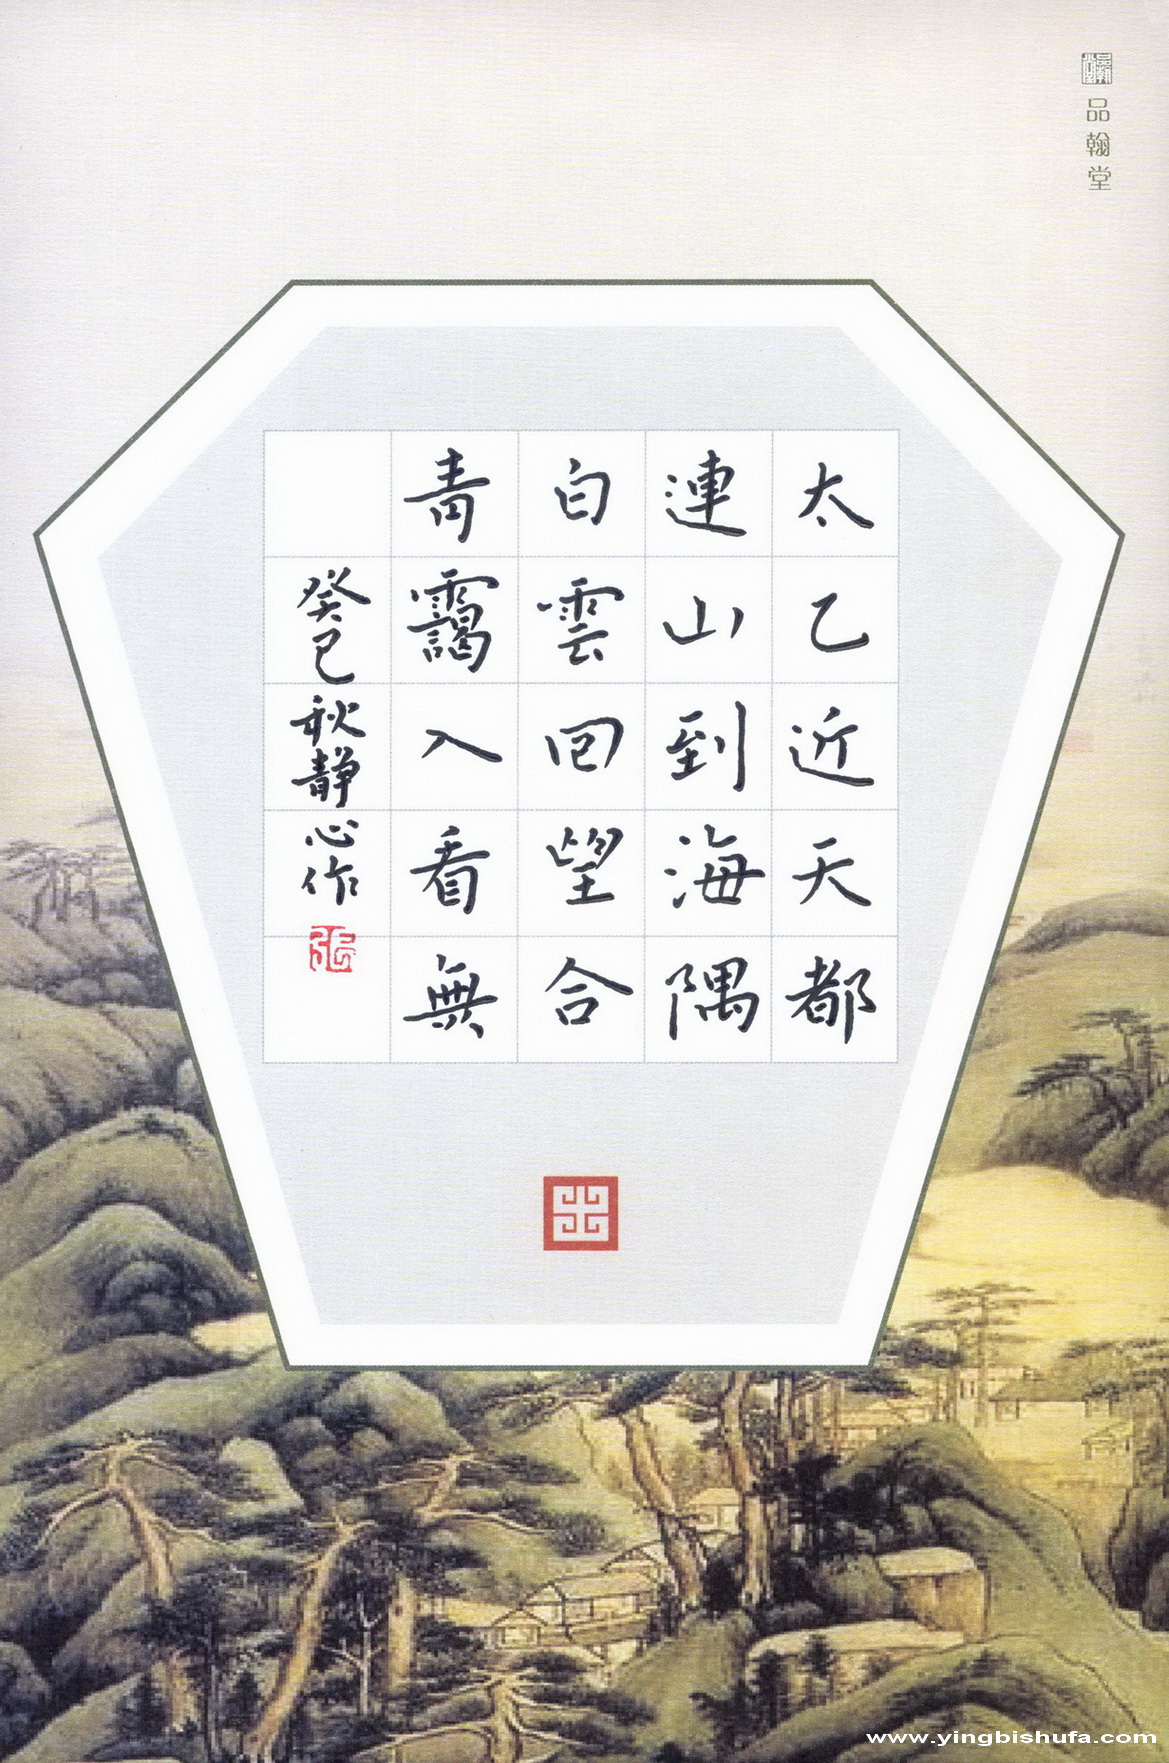 品翰堂
太乙近天都
連山到海隅
白雲回望合
青靄入看無
癸巳秋静心作
張
www.yingbishufa.com